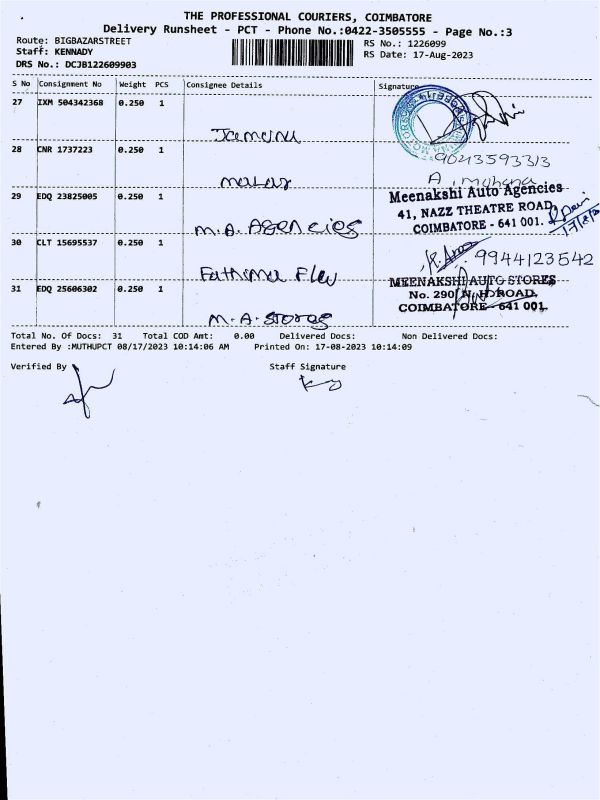 THE PROFESSIONAL COURIERS, COIMBATORE
Delivery Runsheet - PCT - Phone No.:0422-3505555 - Page No.:3
Route: BIGBAZARSTREET
Staff: KENNADY
DRS No.: DCJB122609903
RS No.: 1226099
RS Date: 17-Aug-2023
S No Consignment No Weight PCS Consignee Details Signature
27 IXM 504342368 0.250 1
28 CNR 1737223 0.250 1 malar
9043593313
A. mohana
29 EDQ 23825005 0.250 1 M.A. AGENCIES
Meenakshi Auto Agencies
41, NAZZ THEATRE ROAD,
COIMBATORE - 641 001.
30 CLT 15695537 0.250 1 Fathima
9944123542
31 EDQ 25606302 0.250 1 M.A. Stores
MEENAKSHI AUTO STORES
No. 290, N.H.ROAD,
COIMBATORE - 641 001.
Total No. Of Docs: 31 Total COD Amt: 0.00 Delivered Docs: Non Delivered Docs:
Entered By :MUTHUPCT 08/17/2023 10:14:06 AM Printed On: 17-08-2023 10:14:09
Verified By
Staff Signature